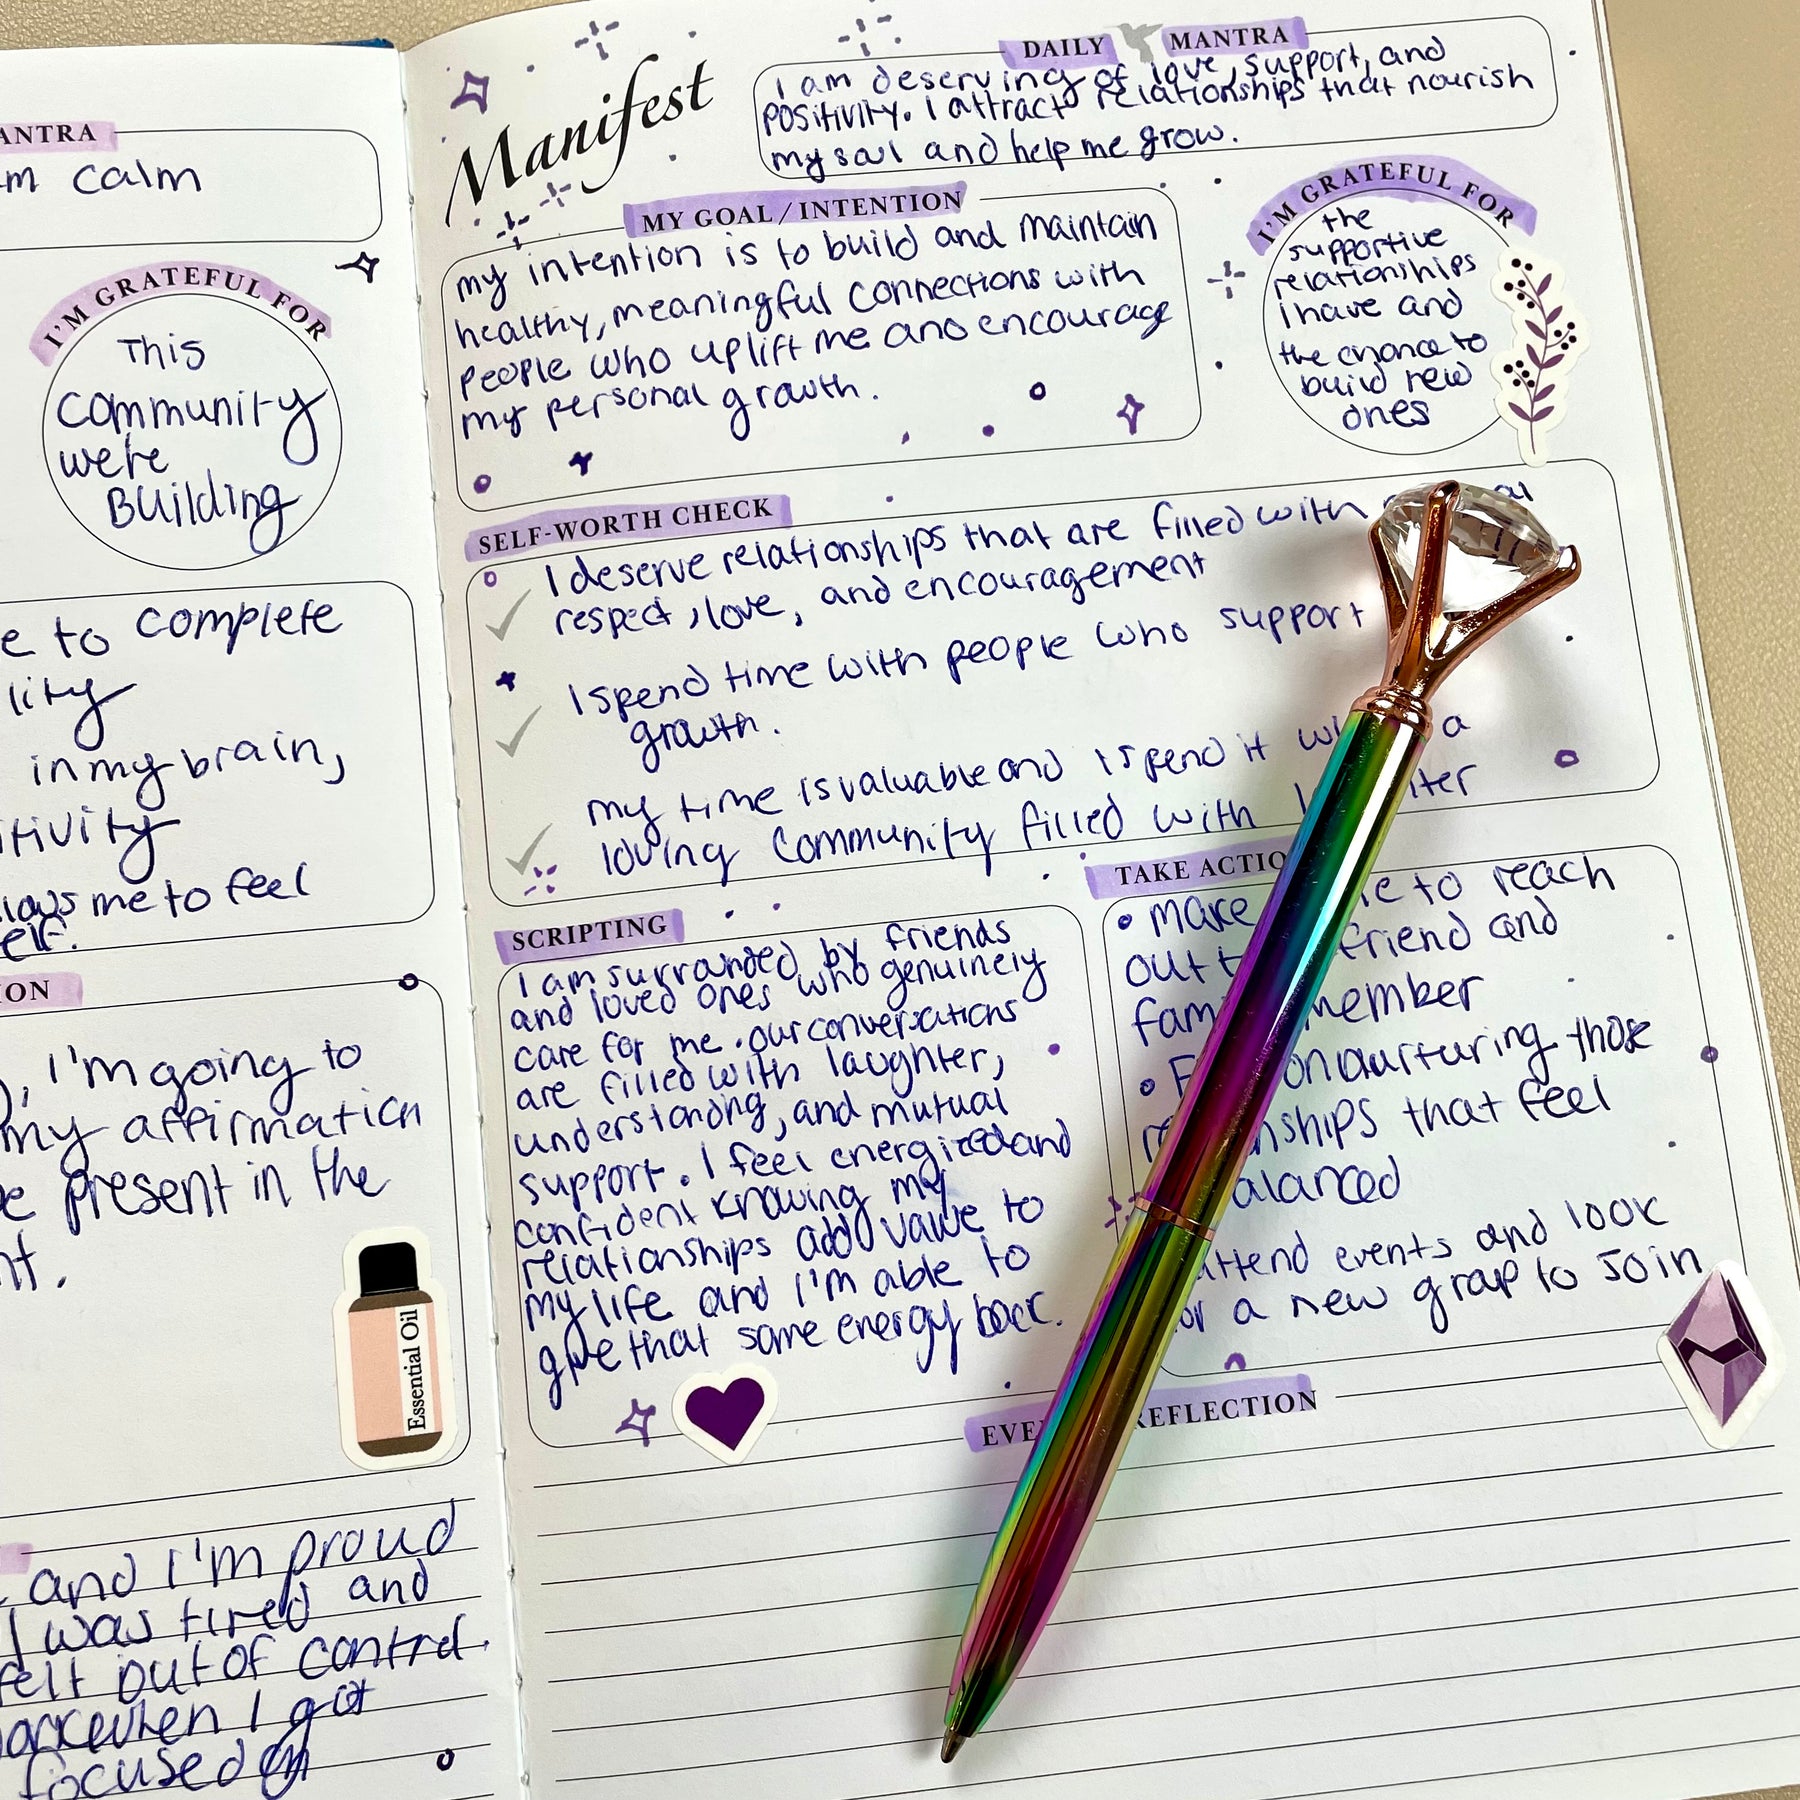 ANTRA
m calm
I'M GRATEFUL FOR
This
community
we're
Building
e to complete
lity
in my brain,
itivity
lows me to feel
elf.
ION
, I'm going to
my affirmation
e present in the
nt.
Essential Oil
and I'm proud
I was tired and
felt out of control.
when I got
focused on
Manifest
DAILY MANTRA
I am deserving of love, support, and
positivity. I attract relationships that nourish
my soul and help me grow.
MY GOAL / INTENTION
my intention is to build and maintain
healthy, meaningful connections with
people who uplift me and encourage
my personal growth.
I'M GRATEFUL FOR
the
supportive
relationships
i have and
the chance to
build new
ones
SELF-WORTH CHECK
I deserve relationships that are filled with
respect, love, and encouragement
I spend time with people who support
growth.
my time is valuable and I spend it a
loving community filled with
SCRIPTING
I am surrounded by friends
and loved ones who genuinely
care for me. our conversations
are filled with laughter,
understanding, and mutual
support. I feel energized and
confident knowing my
relationships add value to
my life and I'm able to
give that same energy back.
TAKE ACTIO
• make to reach
out friend and
fam member
• on nurturing those
nships that feel
alanced
attend events and look
or a new group to join
EVE REFLECTION